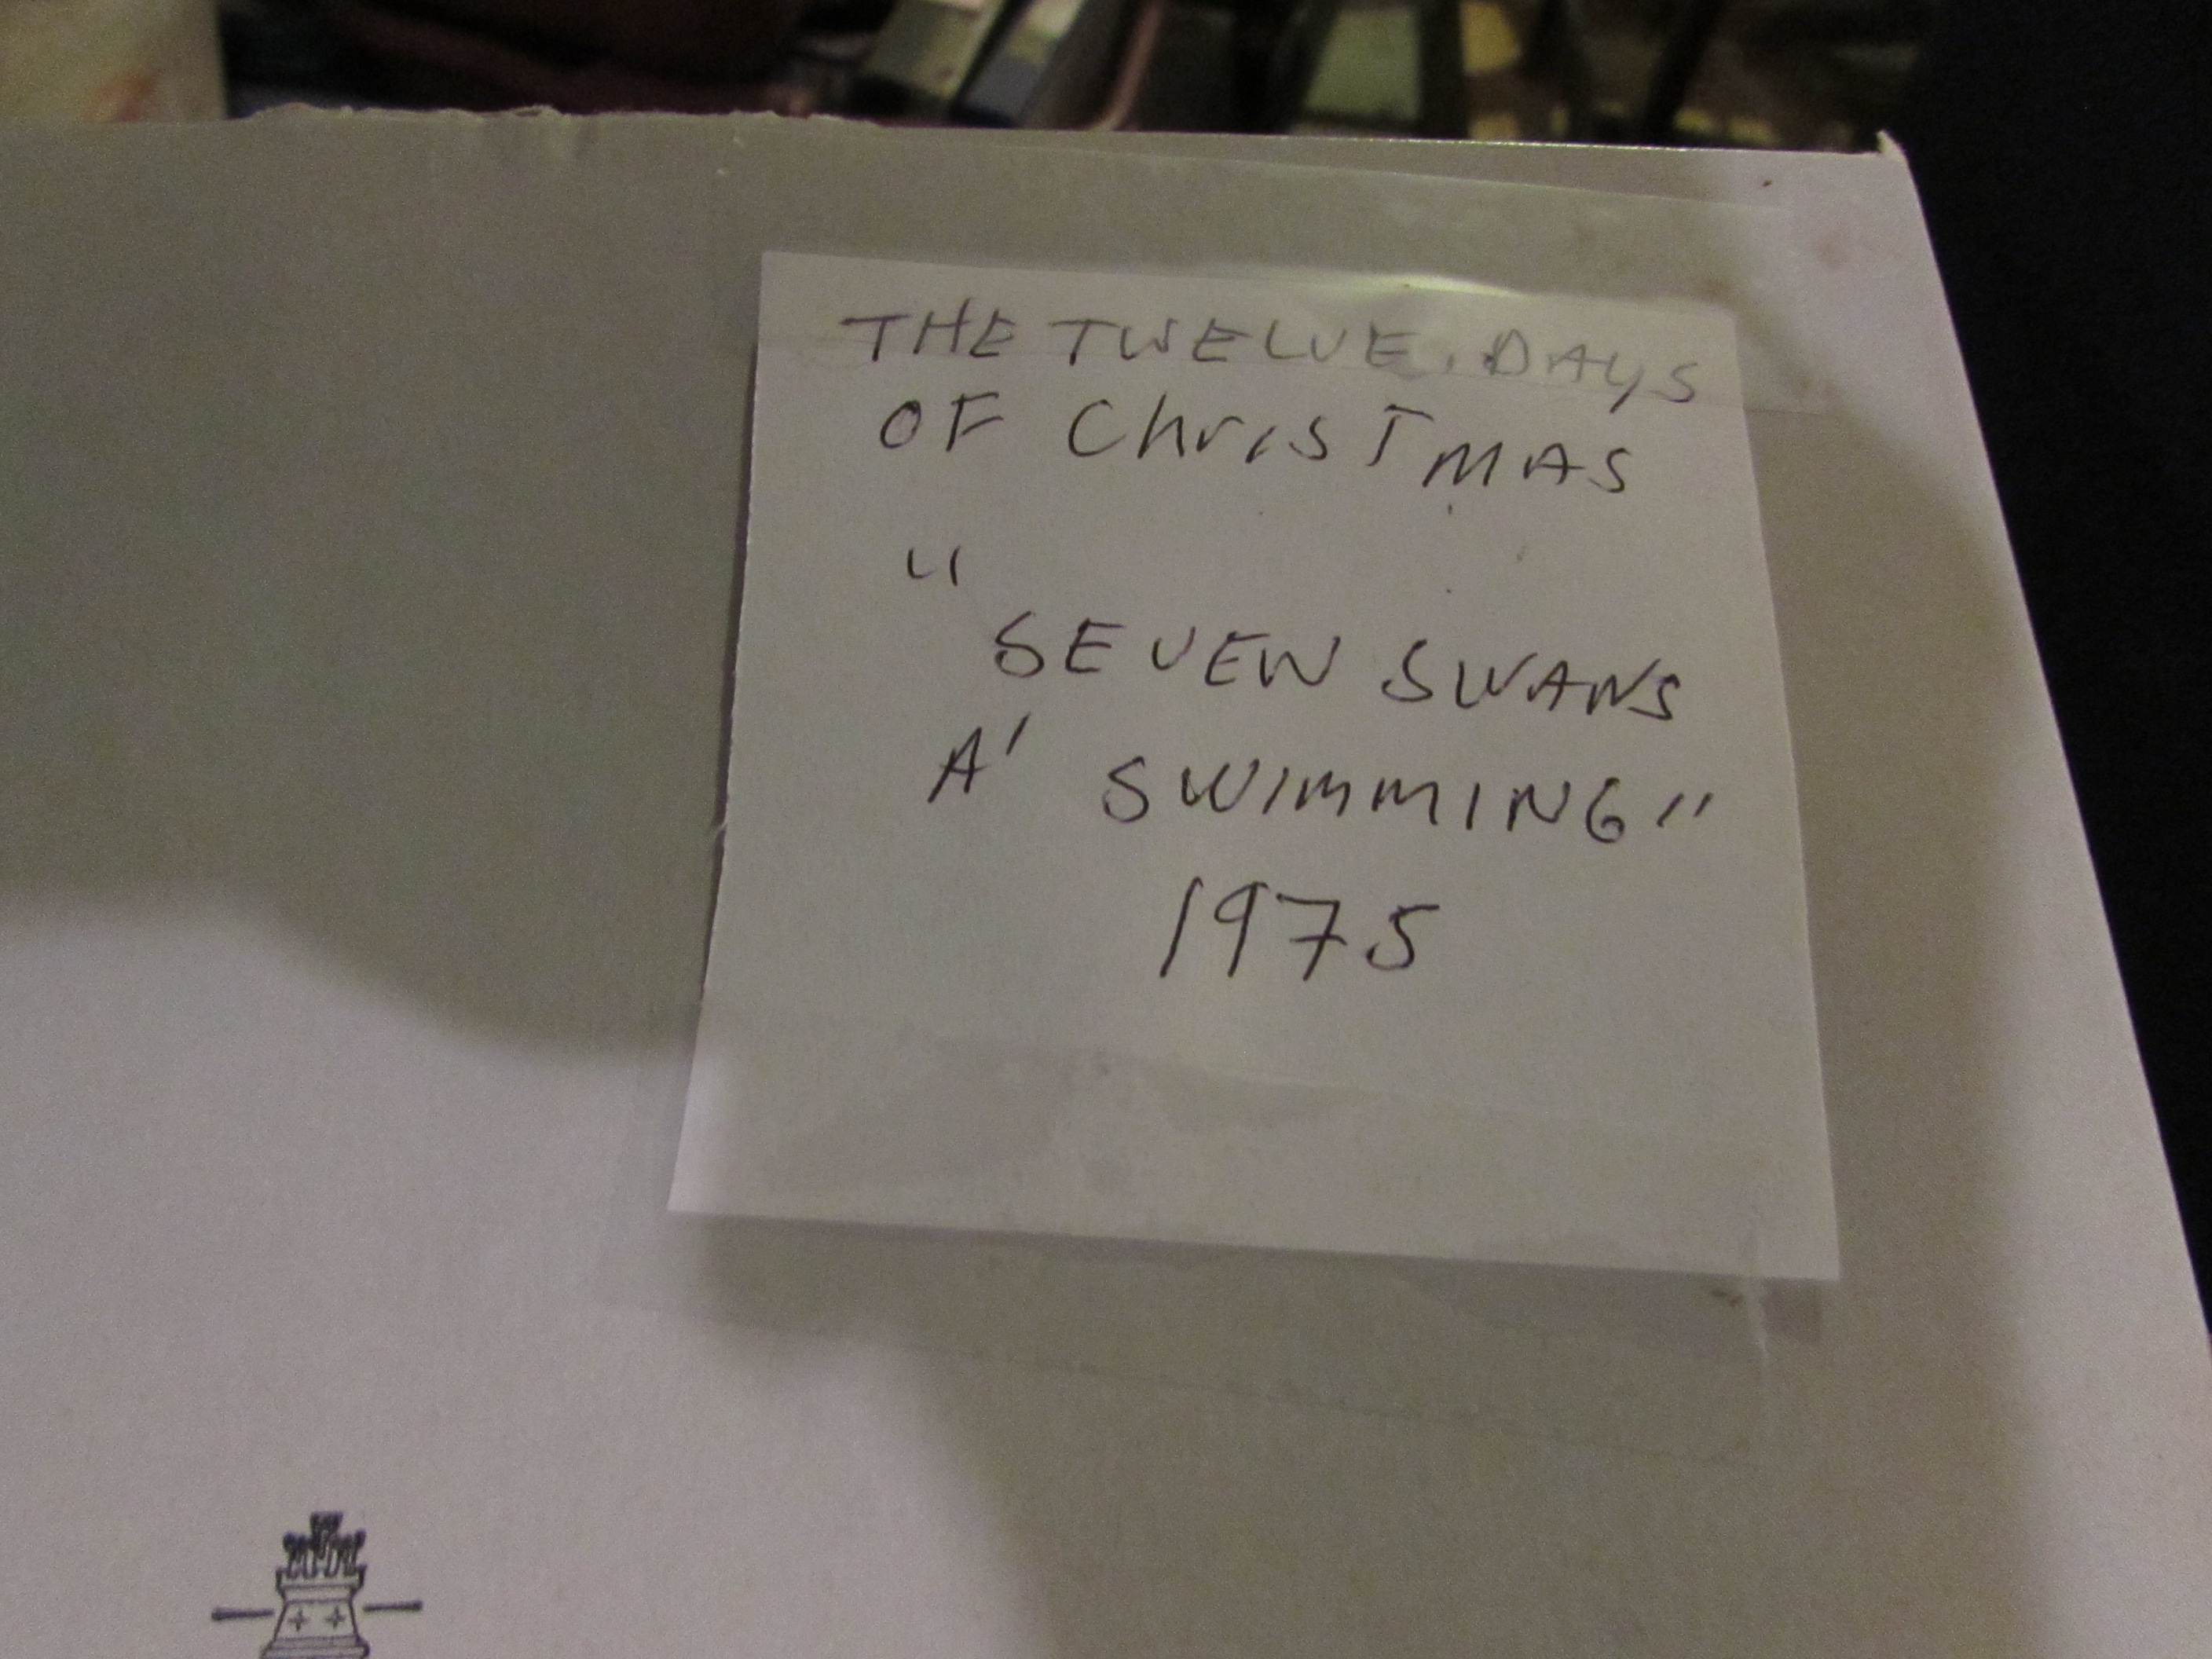 THE TWELVE DAYS
OF ChrisTMAS
"
SEVEN SWANS
A' SWIMMING"
1975